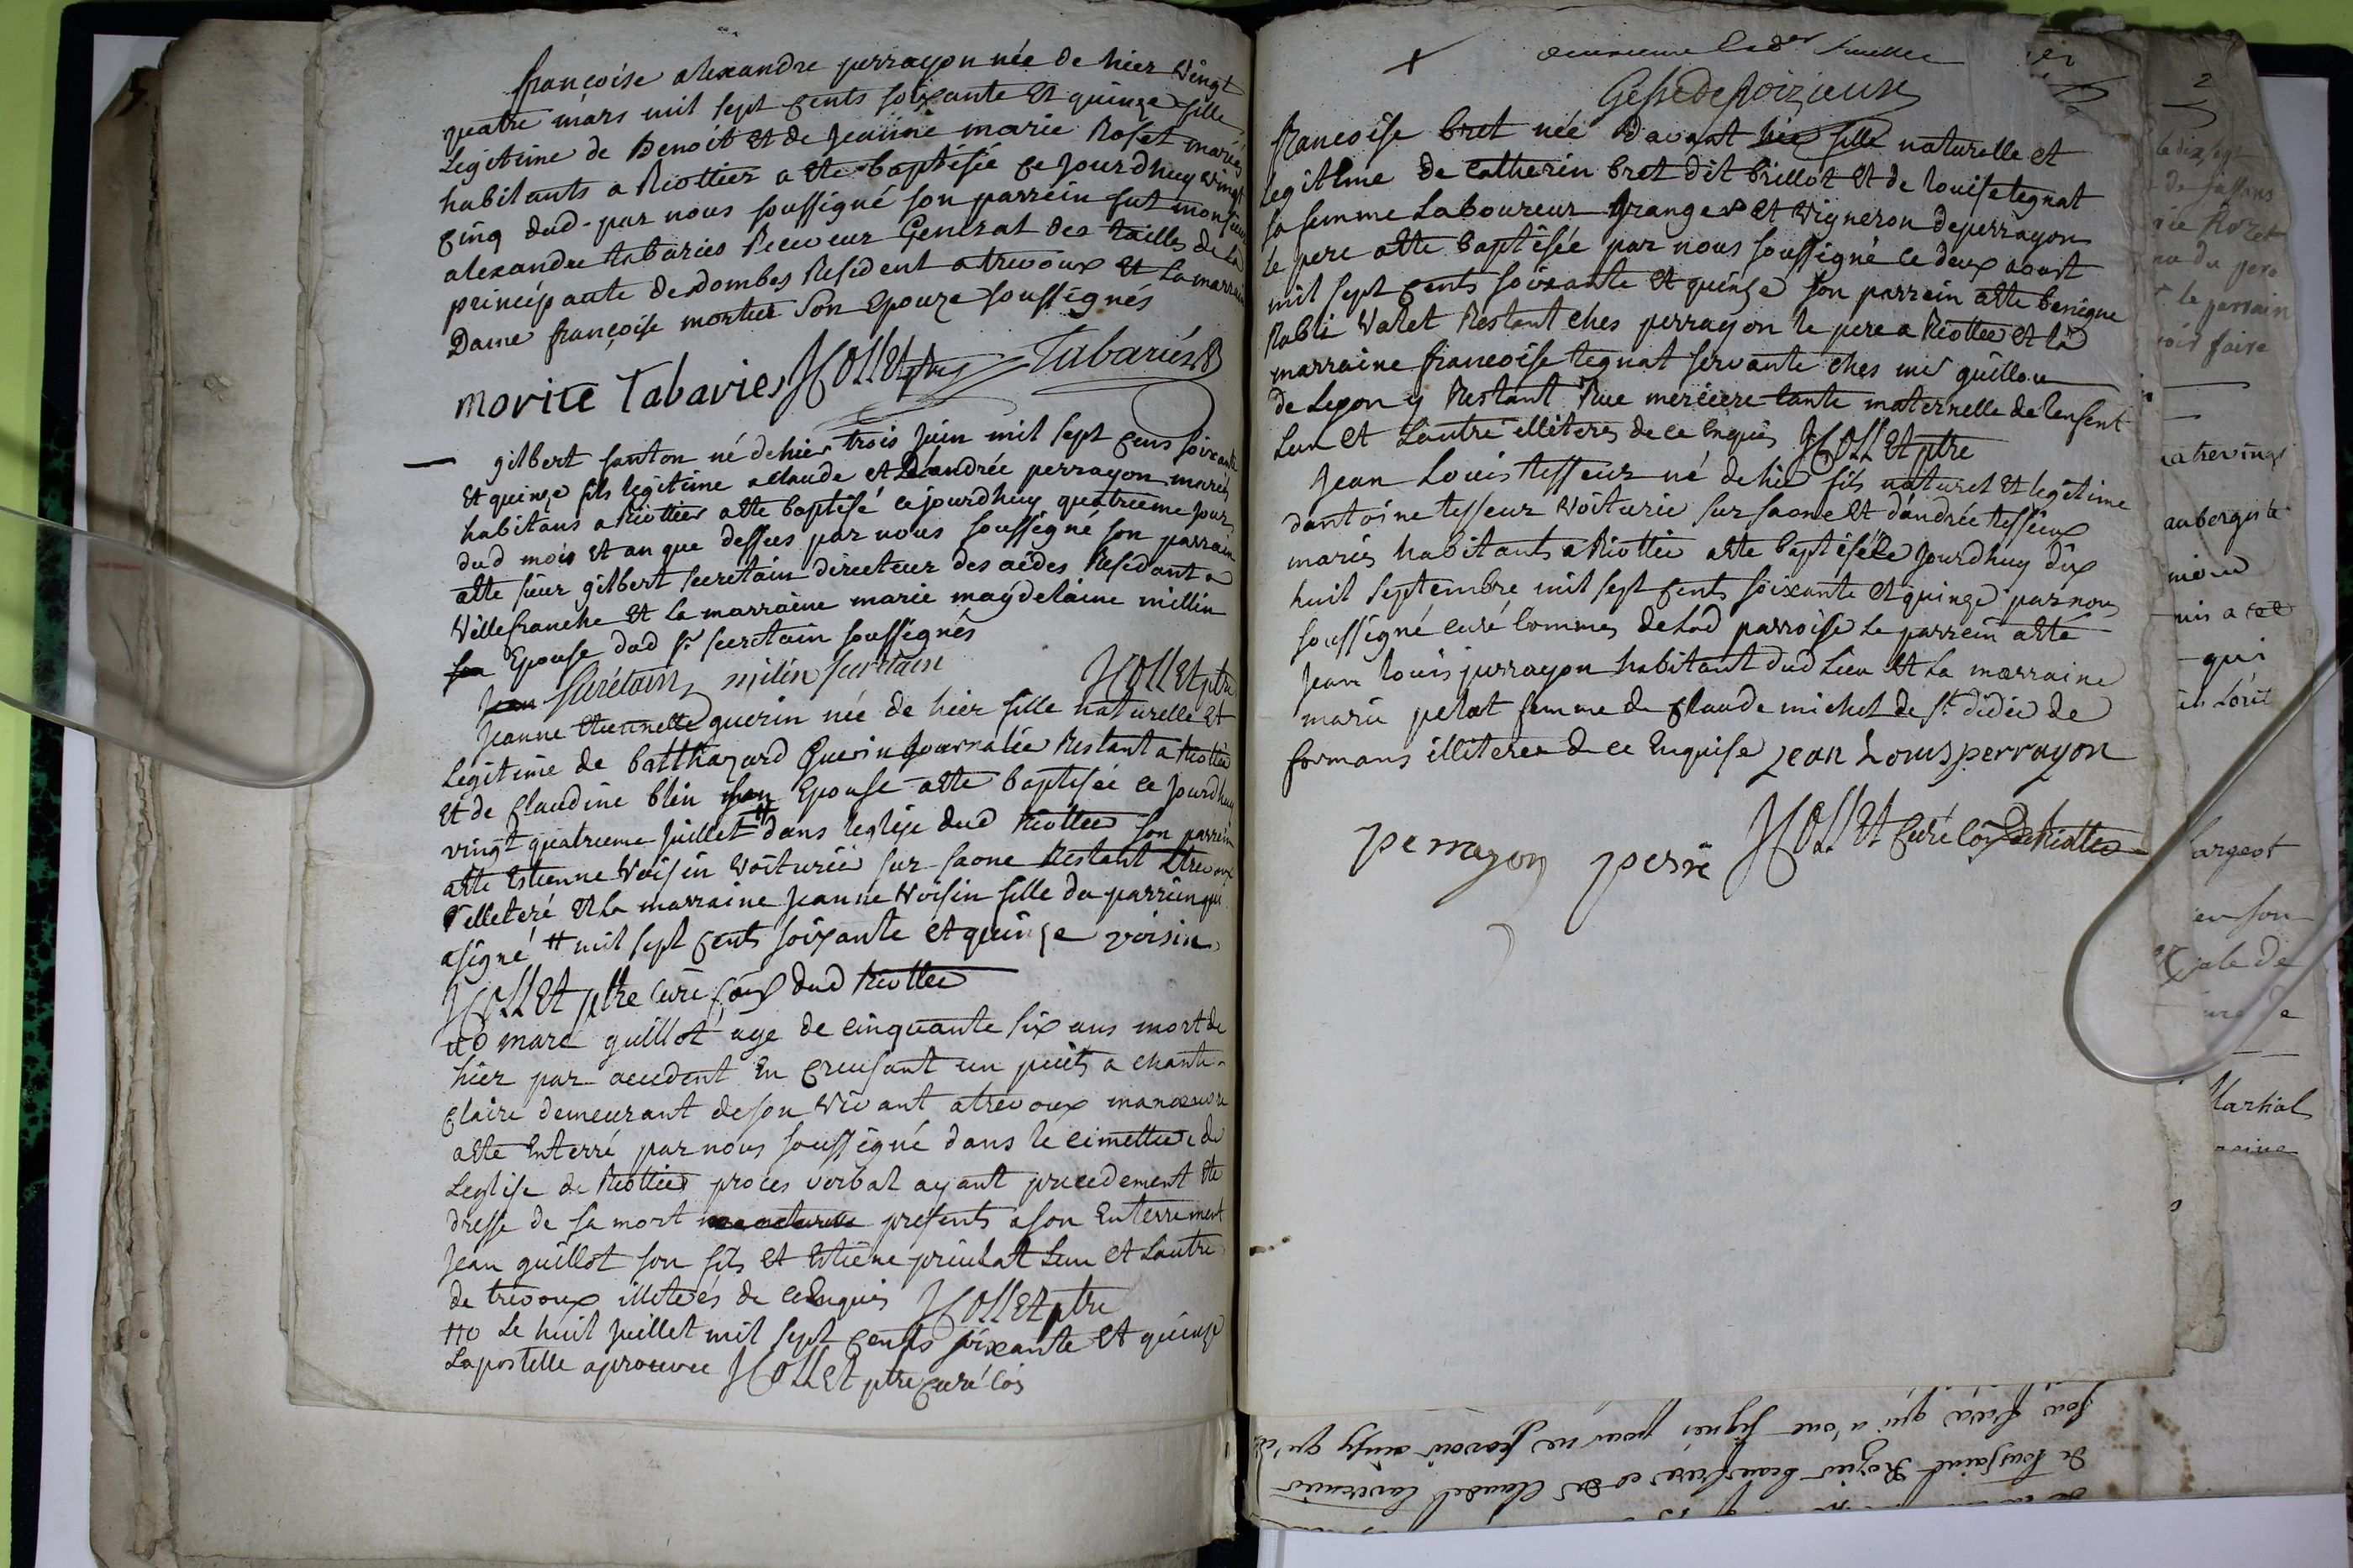 françoise alexandre perrayon née de hier vingt
quatre mars mil sept cents soixante et quinze fille
legitime de Benoit et de jeanne marie Roset mariés
habitants a Riottier a ete baptisée ce jourdhuy vingt
cinq dud. par nous soussigné son parrein fut monsieur
alexandre tabaries Receveur General des tailles de la
principaute de dombes Resident a trevoux et la marraine
Dame françoise mortier son epouze soussignés
morite Tabaries JCOLLET ptre Tabariés
gilbert santon né de hier trois juin mil sept cens soixante
et quinze fils legitime a claude et d'andrée perrayon mariés
habitans a Riottier a ete baptisé ce jourdhuy quatrieme jour
dud mois et an que dessus par nous soussigné son parrain
a ete sieur gilbert secretain directeur des aides Residant a
villefranche et la marraine marie maydelaine millin
son Epouse dud sr. secretain soussignés
Jean Surétain milin suretain JCOLLET ptre
Jeanne etiennette guerin née de hier fille naturelle et
legitime de balthazard Guerin journalié Restant a Riottier
et de claudine blin son Epouse a ete baptisée ce jourdhuy
vingt quatrieme juillet # dans leglise dud Riottier son parrein
a ete estienne voisin voiturié sur saone Restant a trevoux
illeteré et la marraine jeanne voisin fille du parrein qui
a signé # mil sept cents soixante et quinze voisin
JCOLLET ptre curé com dud Riottier
marc guillot age de cinquante six ans mort de
hier par accident en creusant un puits a chante-
claire demeurant de son vivant a trevoux manoeuvre
a ete enterré par nous soussigné dans le cimettiere de
leglise de Riottier proces verbal ayant precedement ete
dresse de sa mort presents a son enterrement
jean guillot son fils et etiene prinlat lun et lautre
de trevoux illiterés de ce enquis JCOLLET ptre
Le huit juillet mil sept cents soixante et quinze
lapostille aprouvée JCOLLET ptre curé com
deuxieme et der feuillet
Gesse de poizieux
francoise bret née davant hier fille naturelle et
legitime de catherin bret dit brillot et de louise tegnat
sa femme laboureur granger et vigneron de perrayon
le pere a ete baptisée par nous soussigné le deux aoust
mil sept cents soixante et quinze son parrein a ete benigne
Rabli valet Restant ches perrayon le pere a Riottier et la
marraine francoise tegnat servante ches mr guillon
de Leyon y Restant Rue merciere tante maternelle de lenfent
lun et lautre illiteres de ce enquis JCOLLET ptre
jean Louis tisseur né de hier fils naturel et legitime
dantoine tisseur voiturié sur saone et d'andrée tisseur
mariés habitants a Riottier a ete baptisé le jourdhuy dix
huit septembre mil sept cents soixante et quinze par nous
soussigné curé commis de lad parroisse le parrein a eté
jean louis perrayon habitant dud lieu et la marraine
marie pelat femme de claude michel de st. didié de
formans illiteree de ce enquise jean Louis perrayon
perrayon perre JCOLLET curé com de Riottier
2
le dix sept
de jassans
rie Rozet
du pere
le parrain
faire
quatrevingt
aubergiste
qui
argeot
en son
Martial
son frere qui n'ont signés pour ne sçavoir ainsy qu'ils
de toussaint Rozier beaufrere et de Claude laverniere